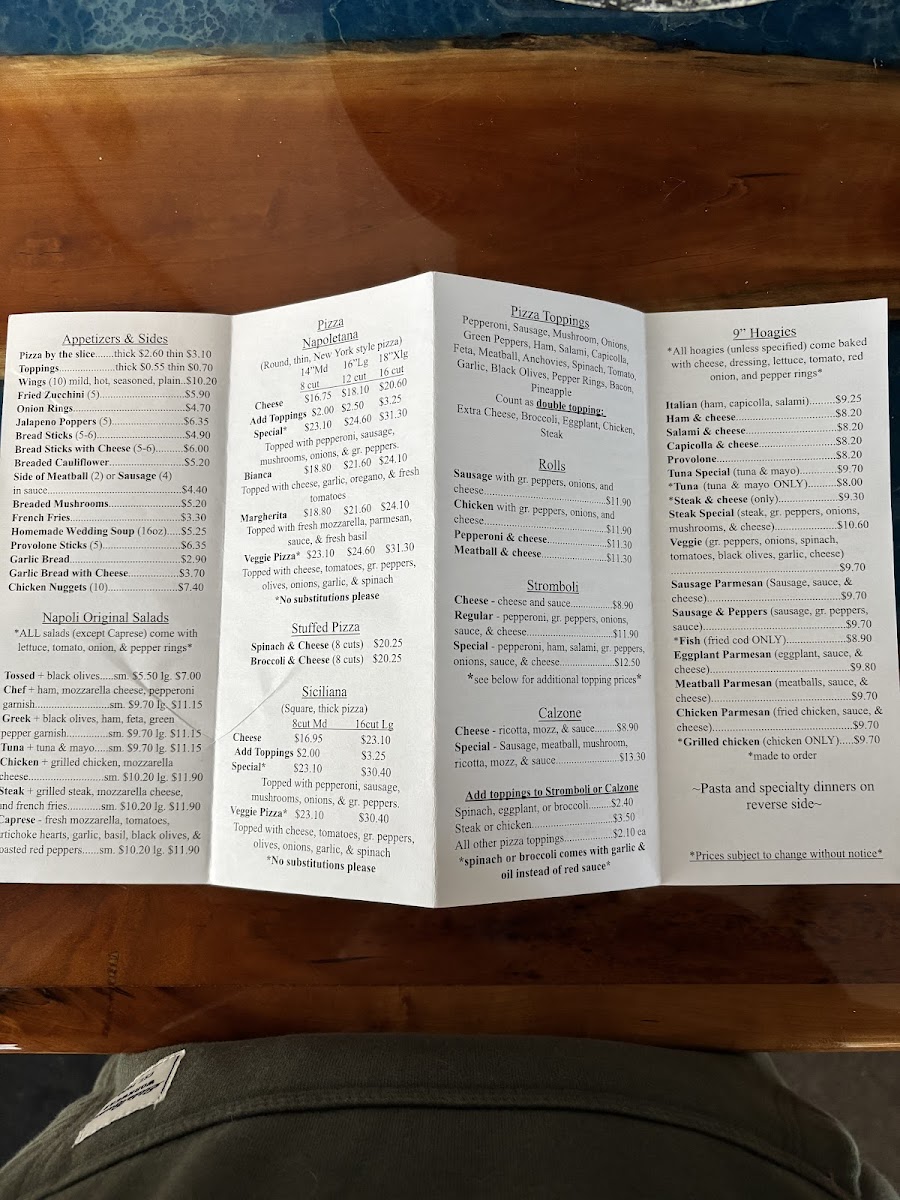 Appetizers & Sides
Pizza by the slice.......thick $2.60 thin $3.10
Toppings................thick $0.55 thin $0.70
Wings (10) mild, hot, seasoned, plain..$10.20
Fried Zucchini (5)..........................$5.90
Onion Rings...................................$4.70
Jalapeno Poppers (5).......................$6.35
Bread Sticks (5-6)...........................$4.90
Bread Sticks with Cheese (5-6).........$6.00
Breaded Cauliflower........................$5.20
Side of Meatball (2) or Sausage (4)
in sauce..........................................$4.40
Breaded Mushrooms........................$5.20
French Fries...................................$3.30
Homemade Wedding Soup (16oz)....$5.25
Provolone Sticks (5).........................$6.35
Garlic Bread...................................$2.90
Garlic Bread with Cheese................$3.70
Chicken Nuggets (10)......................$7.40
Napoli Original Salads
*ALL salads (except Caprese) come with
lettuce, tomato, onion, & pepper rings*
Tossed + black olives.....sm. $5.50 lg. $7.00
Chef + ham, mozzarella cheese, pepperoni
garnish......................sm. $9.70 lg. $11.15
Greek + black olives, ham, feta, green
pepper garnish.............sm. $9.70 lg. $11.15
Tuna + tuna & mayo.....sm. $9.70 lg. $11.15
Chicken + grilled chicken, mozzarella
cheese.........................sm. $10.20 lg. $11.90
Steak + grilled steak, mozzarella cheese,
and french fries...........sm. $10.20 lg. $11.90
Caprese - fresh mozzarella, tomatoes,
artichoke hearts, garlic, basil, black olives, &
roasted red peppers......sm. $10.20 lg. $11.90
Pizza
Napoletana
(Round, thin, New York style pizza)
14”Md 16”Lg 18”Xlg
8 cut 12 cut 16 cut
Cheese $16.75 $18.10 $20.60
Add Toppings $2.00 $2.50 $3.25
Special* $23.10 $24.60 $31.30
Topped with pepperoni, sausage,
mushrooms, onions, & gr. peppers.
Bianca $18.80 $21.60 $24.10
Topped with cheese, garlic, oregano, & fresh
tomatoes
Margherita $18.80 $21.60 $24.10
Topped with fresh mozzarella, parmesan,
sauce, & fresh basil
Veggie Pizza* $23.10 $24.60 $31.30
Topped with cheese, tomatoes, gr. peppers,
olives, onions, garlic, & spinach
*No substitutions please
Stuffed Pizza
Spinach & Cheese (8 cuts) $20.25
Broccoli & Cheese (8 cuts) $20.25
Siciliana
(Square, thick pizza)
8cut Md 16cut Lg
Cheese $16.95 $23.10
Add Toppings $2.00 $3.25
Special* $23.10 $30.40
Topped with pepperoni, sausage,
mushrooms, onions, & gr. peppers.
Veggie Pizza* $23.10 $30.40
Topped with cheese, tomatoes, gr. peppers,
olives, onions, garlic, & spinach
*No substitutions please
Pizza Toppings
Pepperoni, Sausage, Mushroom, Onions,
Green Peppers, Ham, Salami, Capicolla,
Feta, Meatball, Anchovies, Spinach, Tomato,
Garlic, Black Olives, Pepper Rings, Bacon,
Pineapple
Count as double topping:
Extra Cheese, Broccoli, Eggplant, Chicken,
Steak
Rolls
Sausage with gr. peppers, onions, and
cheese.......................................$11.90
Chicken with gr. peppers, onions, and
cheese.......................................$11.90
Pepperoni & cheese...................$11.30
Meatball & cheese.....................$11.30
Stromboli
Cheese - cheese and sauce..............$8.90
Regular - pepperoni, gr. peppers, onions,
sauce, & cheese............................$11.90
Special - pepperoni, ham, salami, gr. peppers,
onions, sauce, & cheese..................$12.50
*see below for additional topping prices*
Calzone
Cheese - ricotta, mozz, & sauce........$8.90
Special - Sausage, meatball, mushroom,
ricotta, mozz, & sauce.....................$13.30
Add toppings to Stromboli or Calzone
Spinach, eggplant, or broccoli........$2.40
Steak or chicken...........................$3.50
All other pizza toppings................$2.10 ea
*spinach or broccoli comes with garlic &
oil instead of red sauce*
9” Hoagies
*All hoagies (unless specified) come baked
with cheese, dressing, lettuce, tomato, red
onion, and pepper rings*
Italian (ham, capicolla, salami).........$9.25
Ham & cheese..................................$8.20
Salami & cheese...............................$8.20
Capicolla & cheese...........................$8.20
Provolone........................................$8.20
Tuna Special (tuna & mayo)............$9.70
*Tuna (tuna & mayo ONLY).........$8.00
*Steak & cheese (only)....................$9.30
Steak Special (steak, gr. peppers, onions,
mushrooms, & cheese)....................$10.60
Veggie (gr. peppers, onions, spinach,
tomatoes, black olives, garlic, cheese)
......................................................$9.70
Sausage Parmesan (Sausage, sauce, &
cheese)..........................................$9.70
Sausage & Peppers (sausage, gr. peppers,
sauce)............................................$9.70
*Fish (fried cod ONLY)..................$8.90
Eggplant Parmesan (eggplant, sauce, &
cheese)...........................................$9.80
Meatball Parmesan (meatballs, sauce, &
cheese)...........................................$9.70
Chicken Parmesan (fried chicken, sauce, &
cheese)...........................................$9.70
*Grilled chicken (chicken ONLY)....$9.70
*made to order
~Pasta and specialty dinners on
reverse side~
*Prices subject to change without notice*